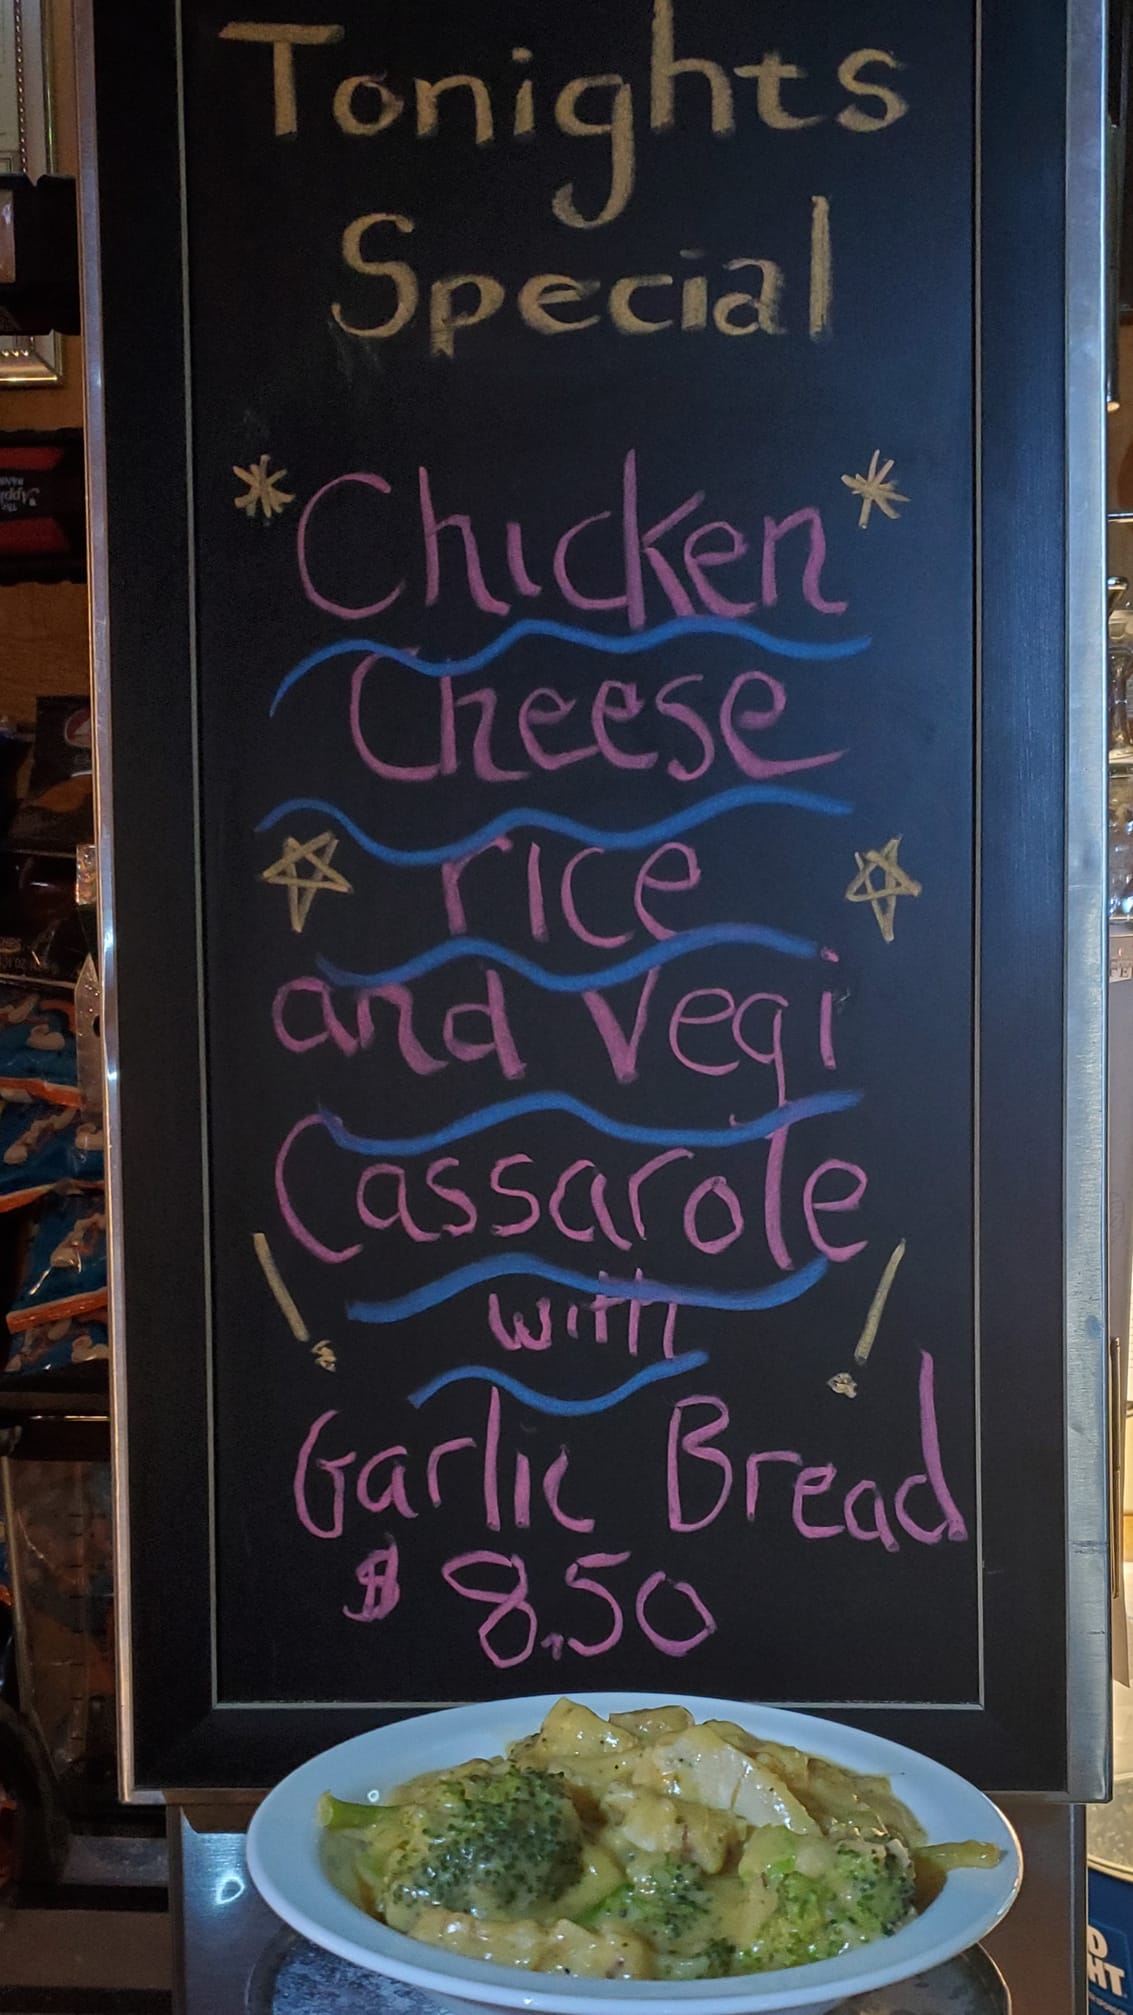 Tonights
Special
Chicken
Cheese
rice
and Vegi
Cassarole
with
Garlic Bread
$ 8.50